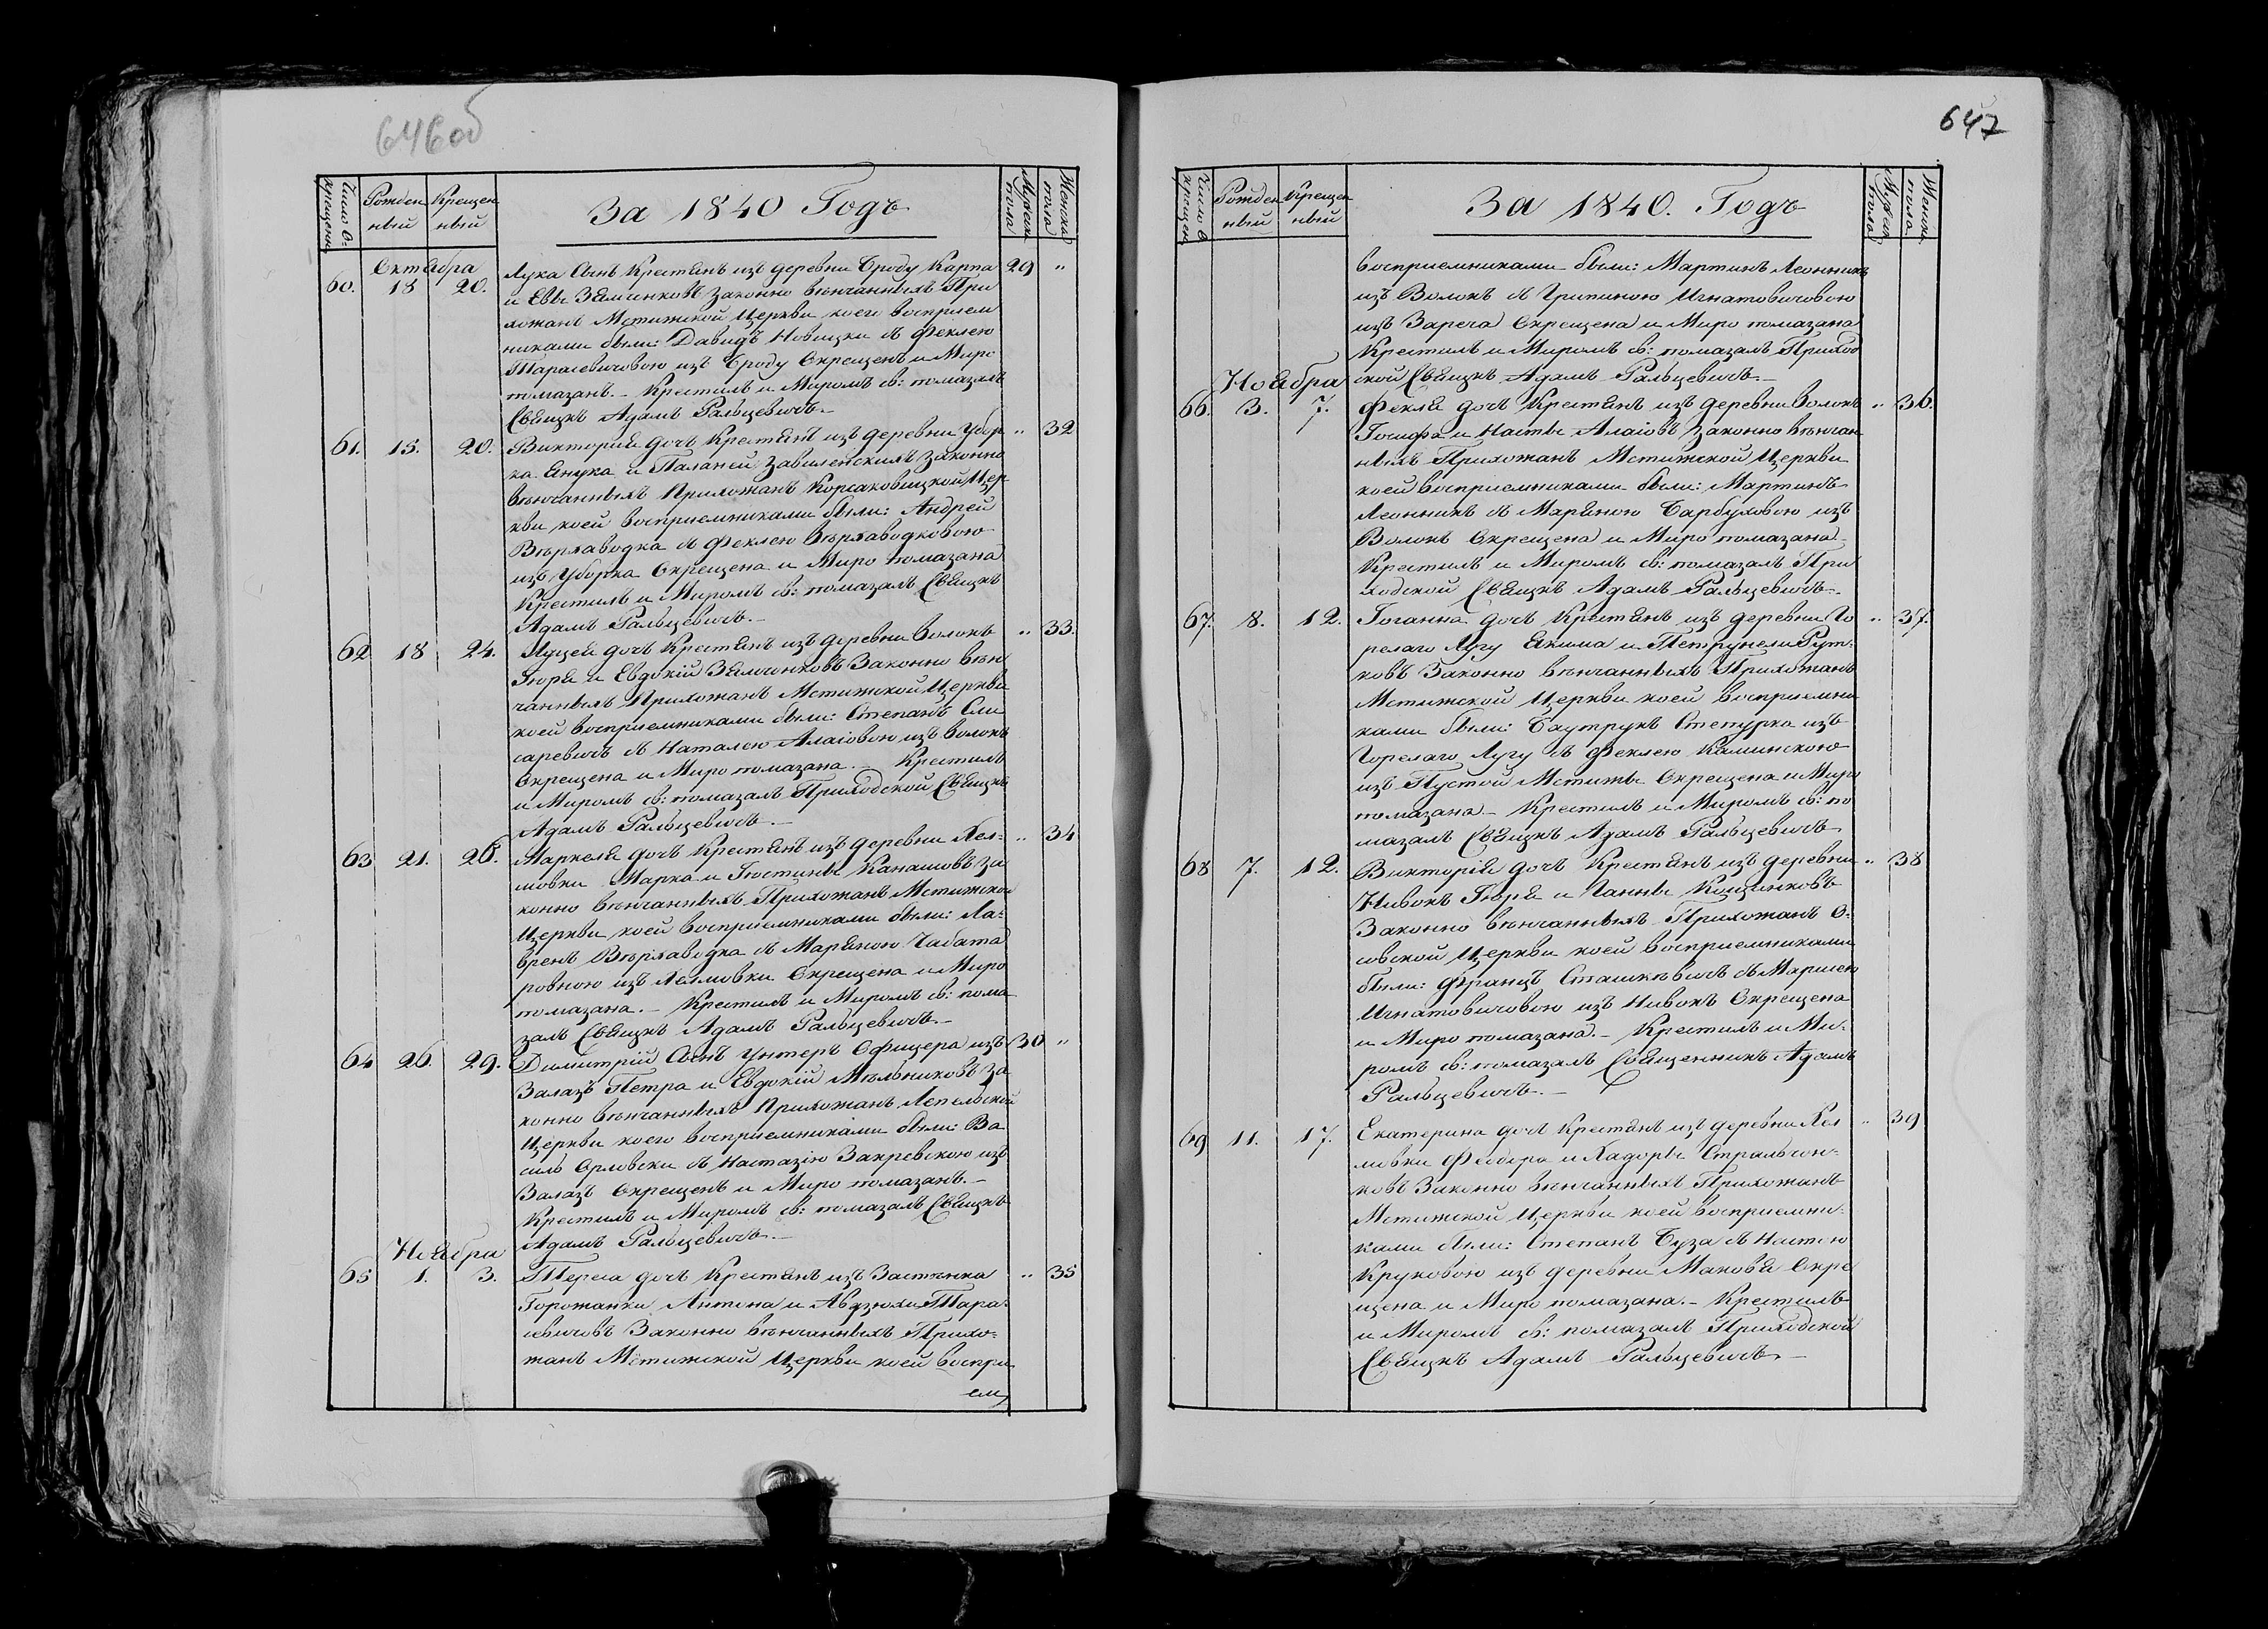 646об
Число о-
крещен.
Рожден
ный
Крещен
ный
За 1840 Годъ
Мужеск.
пола
Женска
пола
Октября
60. 18 20. Лука Сынъ Крестьянъ изъ деревни Броду Карпа 29 "
и Евы Земченковъ законно вѣнчанныхъ При
хожанъ Мстижской Церкви коего восприем
никами были: Давидъ Новицки съ Феклею
Тарасевичовою изъ Броду Окрещенъ и Миро
помазанъ. - Крестилъ и Миромъ св: помазалъ
Свящкъ Адамъ Ральцевичъ. -
61. 15. 20. Викторія дочь Крестьянъ изъ деревни Убор " 32
ка Янука и Паланеи Завиленскихъ законно
вѣнчанныхъ Прихожанъ Корсаковицкой Цер
кви коей восприемниками были: Андрей
Вѣрхаводка съ Феклею Вѣрхаводковою
изъ Уборка Окрещена и Миро помазана
Крестилъ и Миромъ св: помазалъ Свящкъ
Адамъ Ральцевичъ. -
62 18 24. Луцея дочь Крестьянъ изъ деревни Волокъ " 33.
Гюря и Евдокіи Земченковъ Законно вѣн
чанныхъ Прихожанъ Мстижской Церкви
коей восприемниками были: Степанъ Сли
саревичъ съ Наталею Алаіовою изъ Волокъ
Окрещена и Миро помазана. - Крестилъ
и Миромъ св: помазалъ Приходской Свящкъ
Адамъ Ральцевичъ. -
63 21. 26. Маркеля дочь Крестьянъ изъ деревни Хел- " 34
мовки Марка и Іюстины Канашовъ за
конно вѣнчанныхъ Прихожанъ Мстижской
Церкви коей восприемниками были: Ла-
вренъ Вѣрхаводка съ Маряною Чабата
ровною изъ Хелмовки Окрещена и Миро
помазана. - Крестилъ и Миромъ св: пома
залъ Свящкъ Адамъ Ральцевичъ. -
64 26. 29. Димитрій Сынъ Унтеръ Офицера изъ 30 "
Залазъ Петра и Евдокіи Мѣльниковъ за
конно вѣнчанныхъ Прихожанъ Лепельской
Церкви коего восприемниками были: Ва
силь Орловски съ Настазіею Закревскою изъ
Залазъ Окрещенъ и Миро помазанъ. -
Крестилъ и Миромъ св: помазалъ Свящкъ
Адамъ Ральцевичъ. -
Ноября
65 1. 3. Тереса дочь Крестьянъ изъ Застѣнка " 35
Горожанки Антона и Авдзюхи Тара-
севичовъ Законно вѣнчанныхъ Прихо-
жанъ Мстижской Церкви коей воспри
ем
647
Число о
крещен.
Рожден
ный
Крещен
ный
За 1840. Годъ
Мужеск
пола
Женск.
пола
восприемниками были: Мартинъ Леонникъ
изъ Волокъ съ Грипиною Игнатовичовою
изъ Зареча Окрещена и Миро помазана
Крестилъ и Миромъ св: помазалъ Приход
ской Свящкъ Адамъ Ральцевичъ. -
Ноября
66. 3. 7. Фекля дочь Крестьянъ изъ деревни Волокъ " 36.
Іосифа и Насты Алаіовъ законно вѣнчан
ныхъ Прихожанъ Мстижской Церкви
коей восприемниками были: Мартинъ
Леонникъ съ Маряною Барбуховою изъ
Волокъ Окрещена и Миро помазана
Крестилъ и Миромъ св: помазалъ При
ходской Свящкъ Адамъ Ральцевичъ. -
67. 8. 12. Іоганна дочь Крестьянъ изъ деревни Го " 37.
релаго Лугу Якима и Петрунели Рут-
ковъ Законно вѣнчанныхъ Прихожанъ
Мстижской Церкви коей восприемни
ками были: Баутрукъ Степурка изъ
Горелаго Лугу съ Феклею Каминскою
изъ Пустой Мстижы Окрещена и Миро
помазана - Крестилъ и Миромъ св: по
мазалъ Свящкъ Адамъ Ральцевичъ
68 7. 12. Викторія дочь Крестьянъ изъ деревни " 38
Нивокъ Гюря и Ганны Кощенковъ
Законно вѣнчанныхъ Прихожанъ О-
совской Церкви коей восприемниками
были: Францъ Сташкѣвичъ съ Марисею
Игнатовичовою изъ Нивокъ Окрещена
и Миро помазана. - Крестилъ и Ми-
ромъ св: помазалъ Священникъ Адамъ
Ральцевичъ. -
69 11. 17. Екатерина дочь Крестьянъ изъ деревни Хел " 39
мовки Феодора и Хадоры Стральчон-
ковъ Законно вѣнчанныхъ Прихожанъ
Мстижской Церкви коей восприемни-
ками были: Степанъ Буза съ Настею
Круковою изъ деревни Маковя Окре
щена и Миро помазана. - Крестилъ
и Миромъ св: помазалъ Приходской
Свящкъ Адамъ Ральцевичъ. -